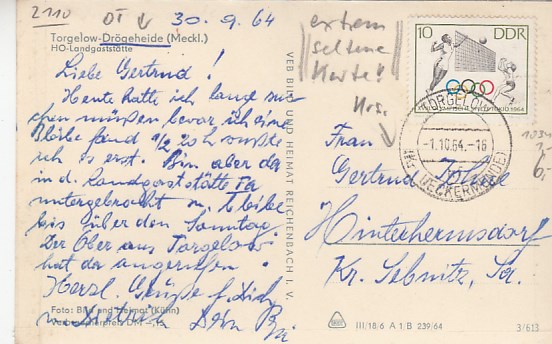 2110
DT ↓ 30.9.64
Torgelow-Drögeheide (Meckl.)
HO-Landgaststätte
Liebe Gertrud!
Heute hatte ich lange suchen müssen bevor ich eine
Bleibe fand 1/2 20 h wußte
ich es erst. Bin aber da
in d. Landgaststätte
untergebracht u. bleibe
bis über den Sonntag.
Der Ober aus Torgelow
hat da angerufen.
Herzl. Grüße f. Dich
u. Dietrich Dein
Foto: Bild und Heimat (Kühn)
Verbraucherpreis DM -,15
VEB BILD UND HEIMAT REICHENBACH I. V.
extrem
seltene
Karte!
Hrs.
10 DDR
1964
TORGELOW
-1.10.64.-16
(KR UECKERMÜNDE)
Frau
Gertrud
Hinterhermsdorf
Kr. Sebnitz, Sa.
III/18/6 A 1/B 239/64
3/613